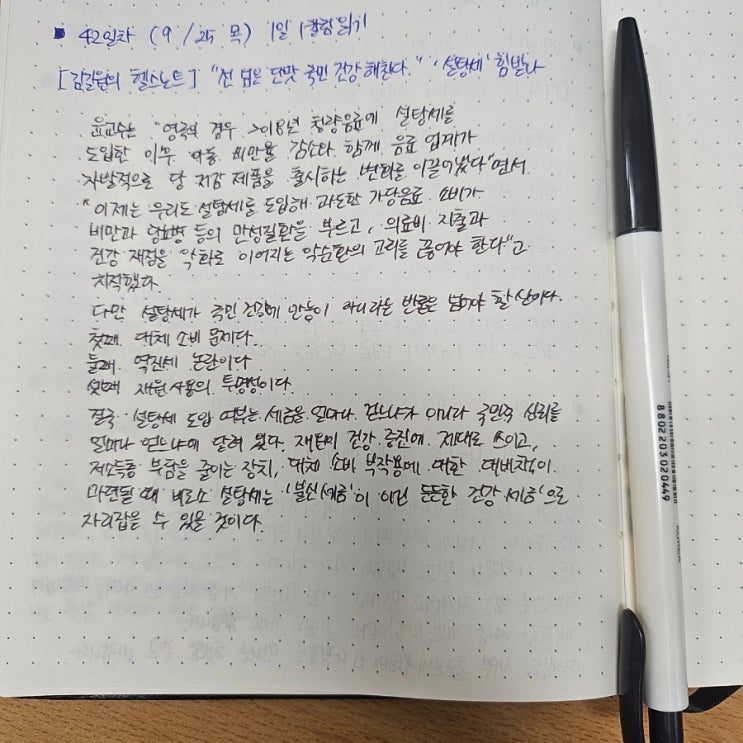 42일차 (9/25 목) 1일 1칼럼 읽기
[김길원의 헬스노트] "선 넘은 단맛 국민 건강 해친다." '설탕세' 힘받나
윤교수는 "영국의 경우 2018년 청량음료에 설탕세를
도입한 이후 아동 비만율 감소와 함께 음료 업계가
자발적으로 당 저감 제품을 출시하는 변화를 이끌어냈다"면서
"이제는 우리도 설탕세를 도입해 과도한 가당음료 소비가
비만과 당뇨병 등의 만성질환을 부르고, 의료비 지출과
건강 재정을 악화로 이어지는 악순환의 고리를 끊어야 한다"고
지적했다.
다만 설탕세가 국민 건강에 만능이 아니라는 반론은 넘어야 할 산이다.
첫째. 대체 소비 문제다.
둘째. 역진세 논란이다
셋째 재원 사용의 투명성이다.
결국 설탕세 도입 여부는 세금을 얼마나 걷느냐가 아니라 국민적 신뢰를
얼마나 얻느냐에 달려 있다. 재원이 건강 증진에 제대로 쓰이고,
저소득층 부담을 줄이는 장치, 대체 소비 부작용에 대한 대비책이
마련될 때 비로소 설탕세는 '불신 세금'이 아닌 든든한 건강 세금'으로
자리잡을 수 있을 것이다.
8802203020449